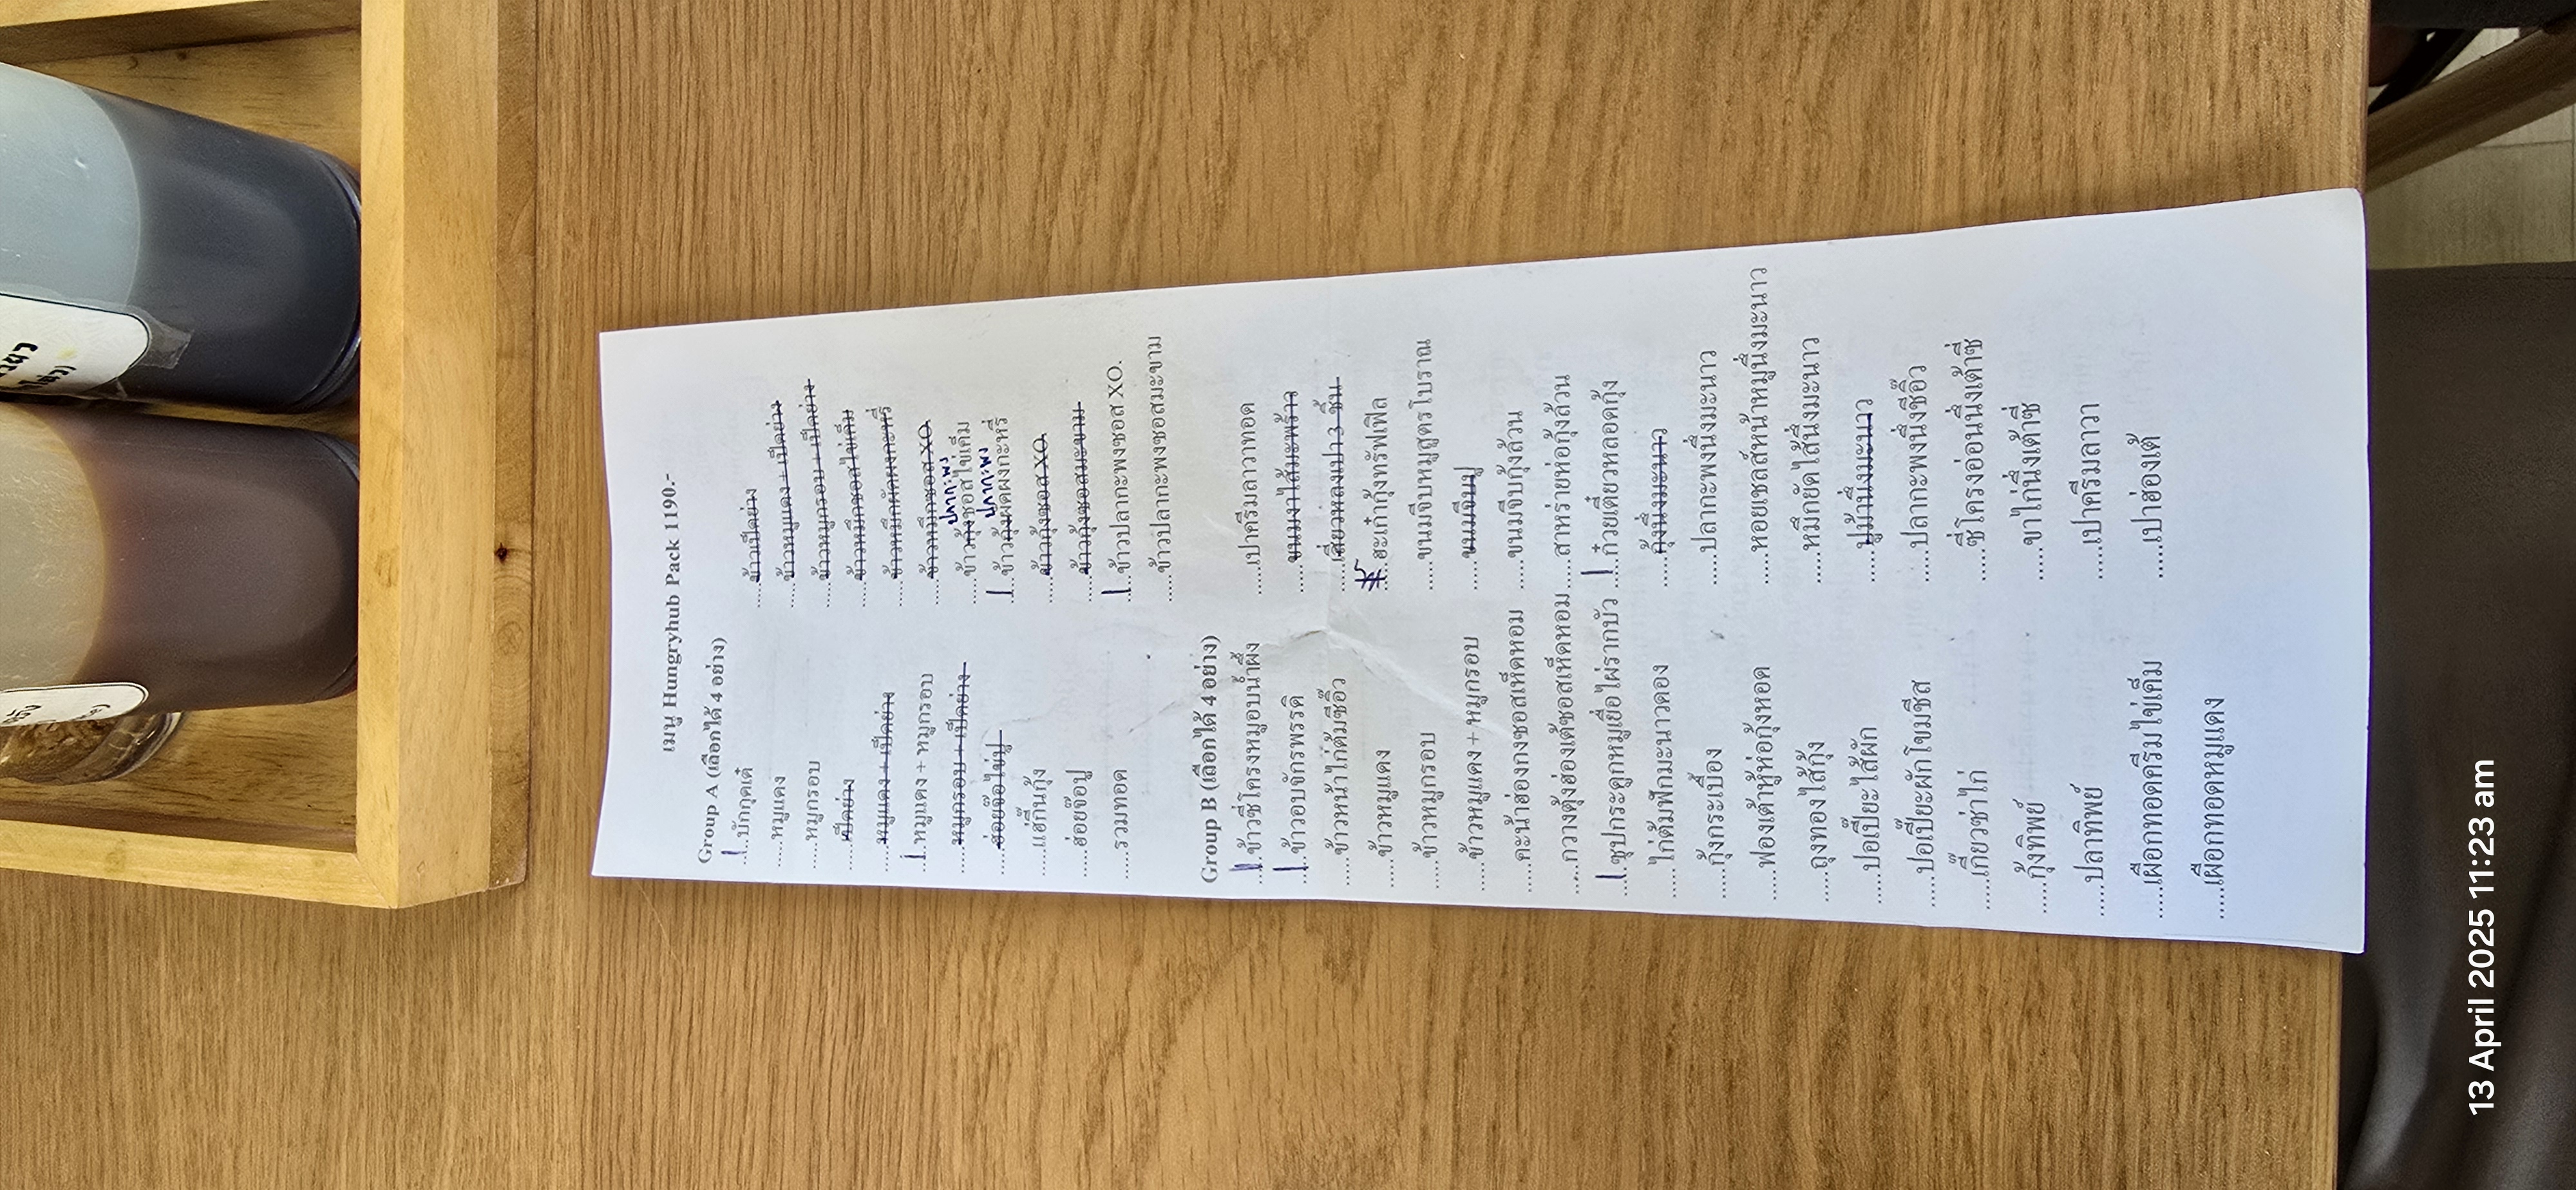 เมนู Hungryhub Pack 1190.-
Group A (เลือกได้ 4 อย่าง)
1 ....บักกุดเต๋
....ข้าวเป็ดย่าง
....หมูแดง
....ข้าวหมูแดง + เป็ดย่าง
....หมูกรอบ
....ข้าวหมูกรอบ + เป็ดย่าง
....เป็ดย่าง
....ข้าวหมึกซอสไข่เค็ม
....หมูแดง + เป็ดย่าง
....ข้าวหมึกผัดผงกะหรี่
1 ....หมูแดง + หมูกรอบ
....ข้าวหมึกซอส XO.
....หมูกรอบ + เป็ดย่าง
ปลากะพง
....ข้าวกุ้งซอสไข่เค็ม
....ฮ่อยจ๊อไข่ปู
ปลากะพง
1 ....ข้าวกุ้งผัดผงกะหรี่
....แฮ่กึ๊นกุ้ง
....ข้าวกุ้งซอส XO.
....ฮ่อยจ๊อปู
....ข้าวกุ้งซอสมะขาม
....รวมทอด
1 ....ข้าวปลากะพงซอส XO.
....ข้าวปลากะพงซอสมะขาม
Group B (เลือกได้ 4 อย่าง)
1 ....ข้าวซี่โครงหมูอบน้ำผึ้ง
....เปาครีมลาวาทอด
1 ....ข้าวอบจักรพรรดิ
....ขนมงาไส้มะพร้าว
....ข้าวหน้าไก่ต้มซีอิ๊ว
....เสี่ยวหลงเปา 3 ชิ้น
....ข้าวหมูแดง
....ฮะเก๋ากุ้งทรัฟเฟิล
....ข้าวหมูกรอบ
....ขนมจีบหมูสูตรโบราณ
....ข้าวหมูแดง + หมูกรอบ
....ขนมจีบปู
....คะน้าฮ่องกงซอสเห็ดหอม
....ขนมจีบกุ้งล้วน
....กวางตุ้งฮ่องเต้ซอสเห็ดหอม
....สาหร่ายห่อกุ้งล้วน
1 ....ซุปกระดูกหมูเยื่อไผ่รากบัว
1 ....ก๋วยเตี๋ยวหลอดกุ้ง
....ไก่ต้มฟักมะนาวดอง
....กุ้งนึ่งมะนาว
....กุ้งกระเบื้อง
....ปลากะพงนึ่งมะนาว
....ฟองเต้าหู้ห่อกุ้งทอด
....หอยเชลล์หน้าหมูนึ่งมะนาว
....ถุงทองไส้กุ้ง
....หมึกยัดไส้นึ่งมะนาว
....ปอเปี๊ยะไส้ผัก
....ปูม้านึ่งมะนาว
....ปอเปี๊ยะผักโขมชีส
....ปลากะพงนึ่งซีอิ๊ว
....เกี๊ยวซ่าไก่
....ซี่โครงอ่อนนึ่งเต้าซี่
....กุ้งทิพย์
....ขาไก่นึ่งเต้าซี่
....ปลาทิพย์
....เปาครีมลาวา
....เผือกทอดครีมไข่เค็ม
....เปาฮ่องเต้
....เผือกทอดหมูแดง
13 April 2025 11:23 am